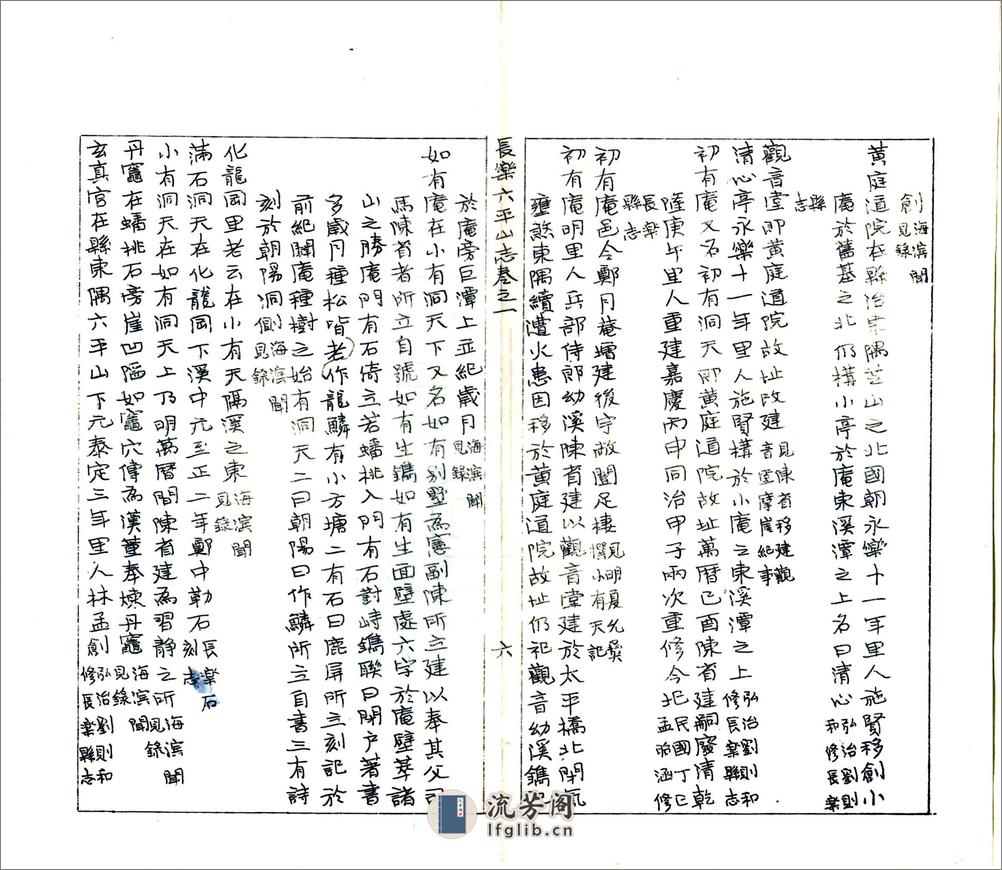 創海濱聞見錄
黃庭道院在縣治東隅芝山之北國朝永樂十一年里人施賢移創小
庵於舊基之北仍構小亭於庵東溪潭之上名曰清心弘治劉則和修長樂
縣志
觀音堂即黃庭道院故址改建見陳省移建觀音堂摩崖紀事
清心亭永樂十一年里人施賢構於小庵之東溪潭之上弘治劉則和修長樂縣志
初有庵又名初有洞天即黃庭道院故址萬曆已酉陳省建嗣廢清乾
隆庚午里人重建嘉慶丙申同治甲子兩次重修今北民國丁巳孟昭涵修
長樂縣志
初有庵邑令鄭月菴增建後宇敞閎足棲見明夏允彝小有天記
初有庵明里人兵部侍郎幼溪陳省建以觀音堂建於太平橋北閉氣
壅煞東隅續遭火患因移於黃庭道院故址仍祀觀音幼溪鐫
長樂六平山志卷之一
六
於庵旁巨潭上並紀歲月海濱聞見錄
如有庵在小有洞天下又名如有別墅為憲副陳所立建以奉其父司
馬陳省者所立自號如有生鐫如有生面壁處六字於庵壁萃諸
山之勝庵門有石倚立若蟠桃入門有石對峙鐫聯曰閉戶著書
多歲月種松皆老作龍鱗有小方塘二有石曰鹿屏所立刻記於
前紀闢庵種樹之始有洞天二曰朝陽曰作鱗所立自書三有詩
刻於朝陽洞側海濱聞見錄
化龍岡里老云在小有天隔溪之東海濱聞見錄
滿石洞天在化龍岡下溪中元至正二年鄭中勒石長樂石刻志
小有洞天在如有洞天上乃明萬曆間陳省建為習靜之所海濱聞見錄
丹竈在蟠桃石旁崖凹陋如竈穴傳為漢董奉煉丹竈海濱聞見錄
玄真宮在縣東隅六平山下元泰定三年里人林孟創弘治劉則和修長樂縣志
流芳阁
lfglib.cn